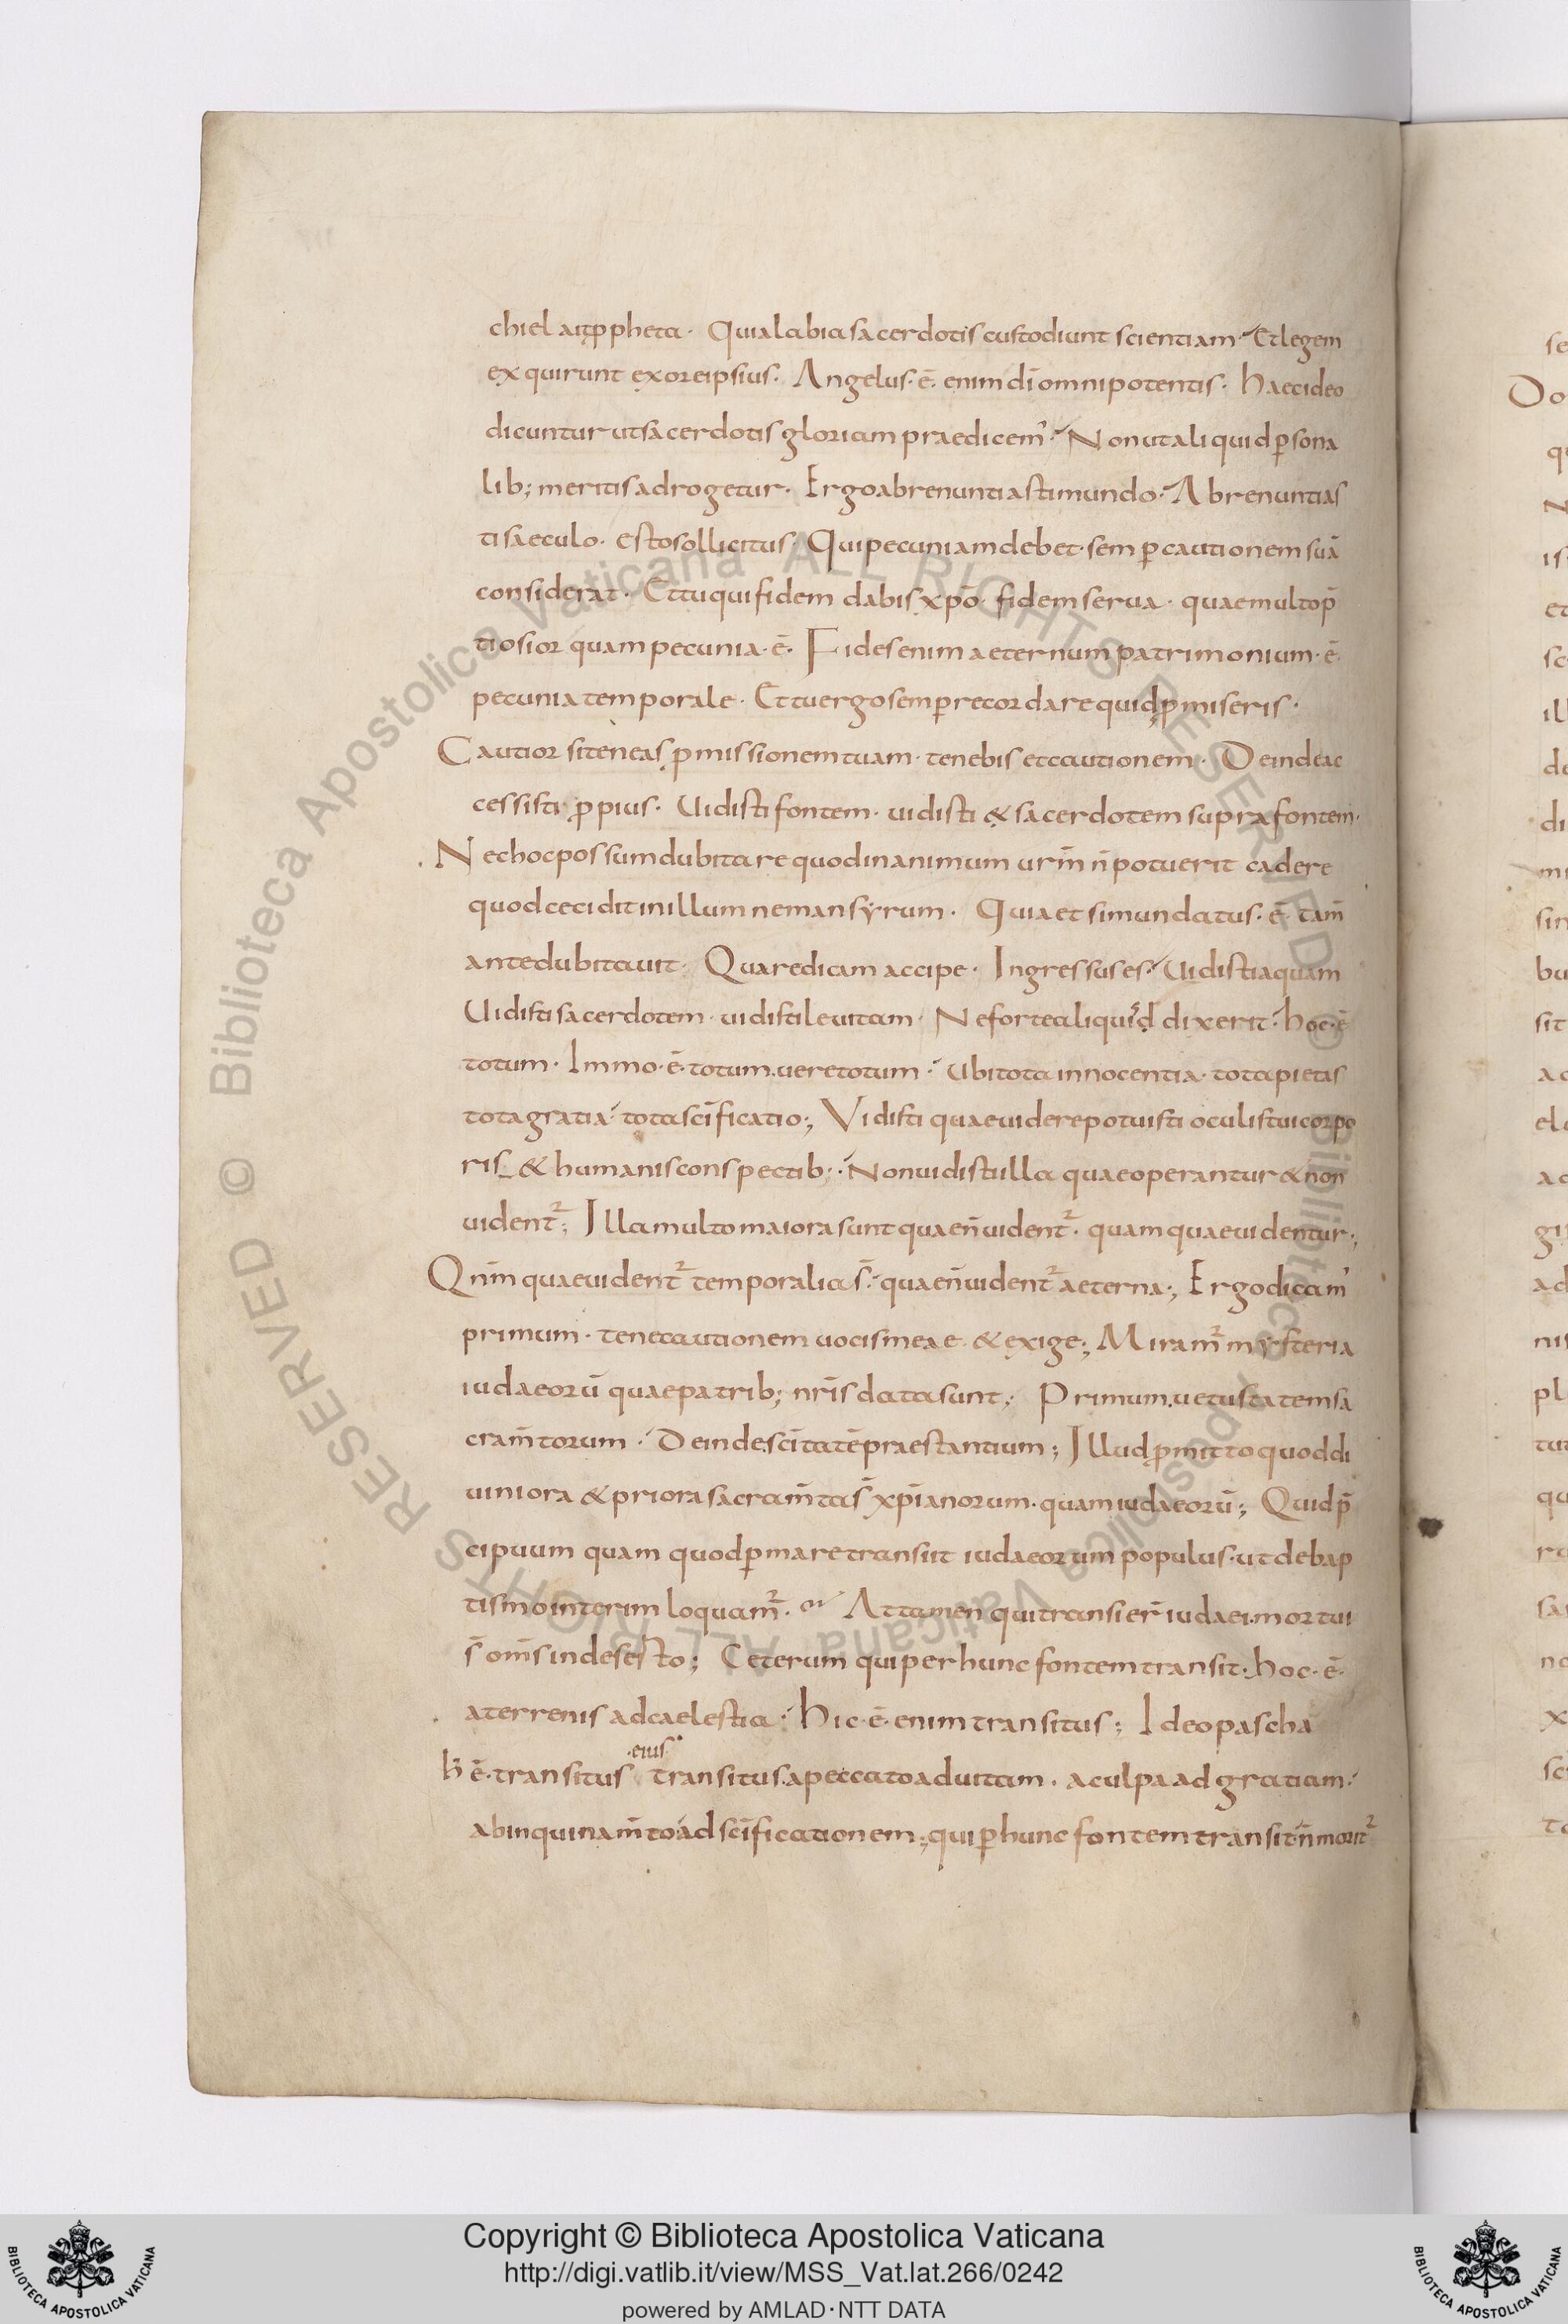 chiel ait ꝓpheta · Quia labia sacerdotis custodiunt scientiam · Et legem
exquirunt exore ipsius · Angelus · ē · enim dī omnipotentis · haecideo
dicuntur ut sacerdotis gloriam praedicem' · Non ut aliquid ꝑsona
lib; meritis adrogetur · Ergo abrenuntiasti mundo · Abrenuntias
ti saeculo · esto sollicitus · Qui pecuniam debet · semꝑ cautionem suā
considerat · Et tu qui fidem dabis xpō · fidem serua · quae multo p̄
tiosior quam pecunia · ē · Fides enim aeternum patrimonium · ē ·
pecunia temporale · Et tu ergo semꝑ recordare quid ꝓmiseris ·
Cautior si teneas ꝓmissionem tuam · tenebis et cautionem · Deinde ac
cessisti ꝓpius · Uidisti fontem · uidisti & sacerdotem supra fontem ·
Nec hoc possum dubitare quod in animum urm̄ n̄ potuerit cadere
quod cecidit in illum neman syrum · Quia etsi mundatus · ē · tam̄
ante dubitauit · Quare dicam accipe · Ingressus es · Uidisti aquam
Uidisti sacerdotem · uidisti leuitam · Ne forte aliquis dixerit · hoc · ē
totum · Immo · ē · totum · uere totum · Ubi tota innocentia · tota pietas
tota gratia · tota scīficatio ; Vidisti quae uidere potuisti oculis tui corpo
ris & humanis conspectib; · Non uidisti illa quae operantur & non
uident² ; Illa multo maiora sunt quae n̄ uident² · quam quae uidentur ;
Qnm̄ quae uident² temporalia s̄ · quae n̄ uident² aeterna ; Ergo dicam'
primum · tene cautionem uocis meae · & exige ; Miram̄² mysteria
iudaeorū quae patrib; nrīs data sunt ; Primum uetustatem sa
cram̄torum · Deinde scītatē praestantium ; Illud ꝓmitto quod di
uiniora & priora sacram̄ta s̄ xp̄ianorum · quam iudaeorū ; Quid p̄
cipuum quam quod ꝑ mare transiit iudaeorum populus · ut de bap
tismo interim loquam̄² · Attamen qui transier̄ iudaei · mortui
s̄ om̄s in deserto ; Ceterum qui per hunc fontem transit · hoc · ē ·
a terrenis ad caelestia · hic · ē · enim transitus ; Ideo pascha
h̄ ē · transitus · eius · transitus a peccato ad uitam · a culpa ad gratiam ·
ab inquinam̄to ad scīficationem ; qui ꝑ hunc fontem transit · n̄ morit²
Copyright © Biblioteca Apostolica Vaticana
http://digi.vatlib.it/view/MSS_Vat.lat.266/0242
powered by AMLAD·NTT DATA